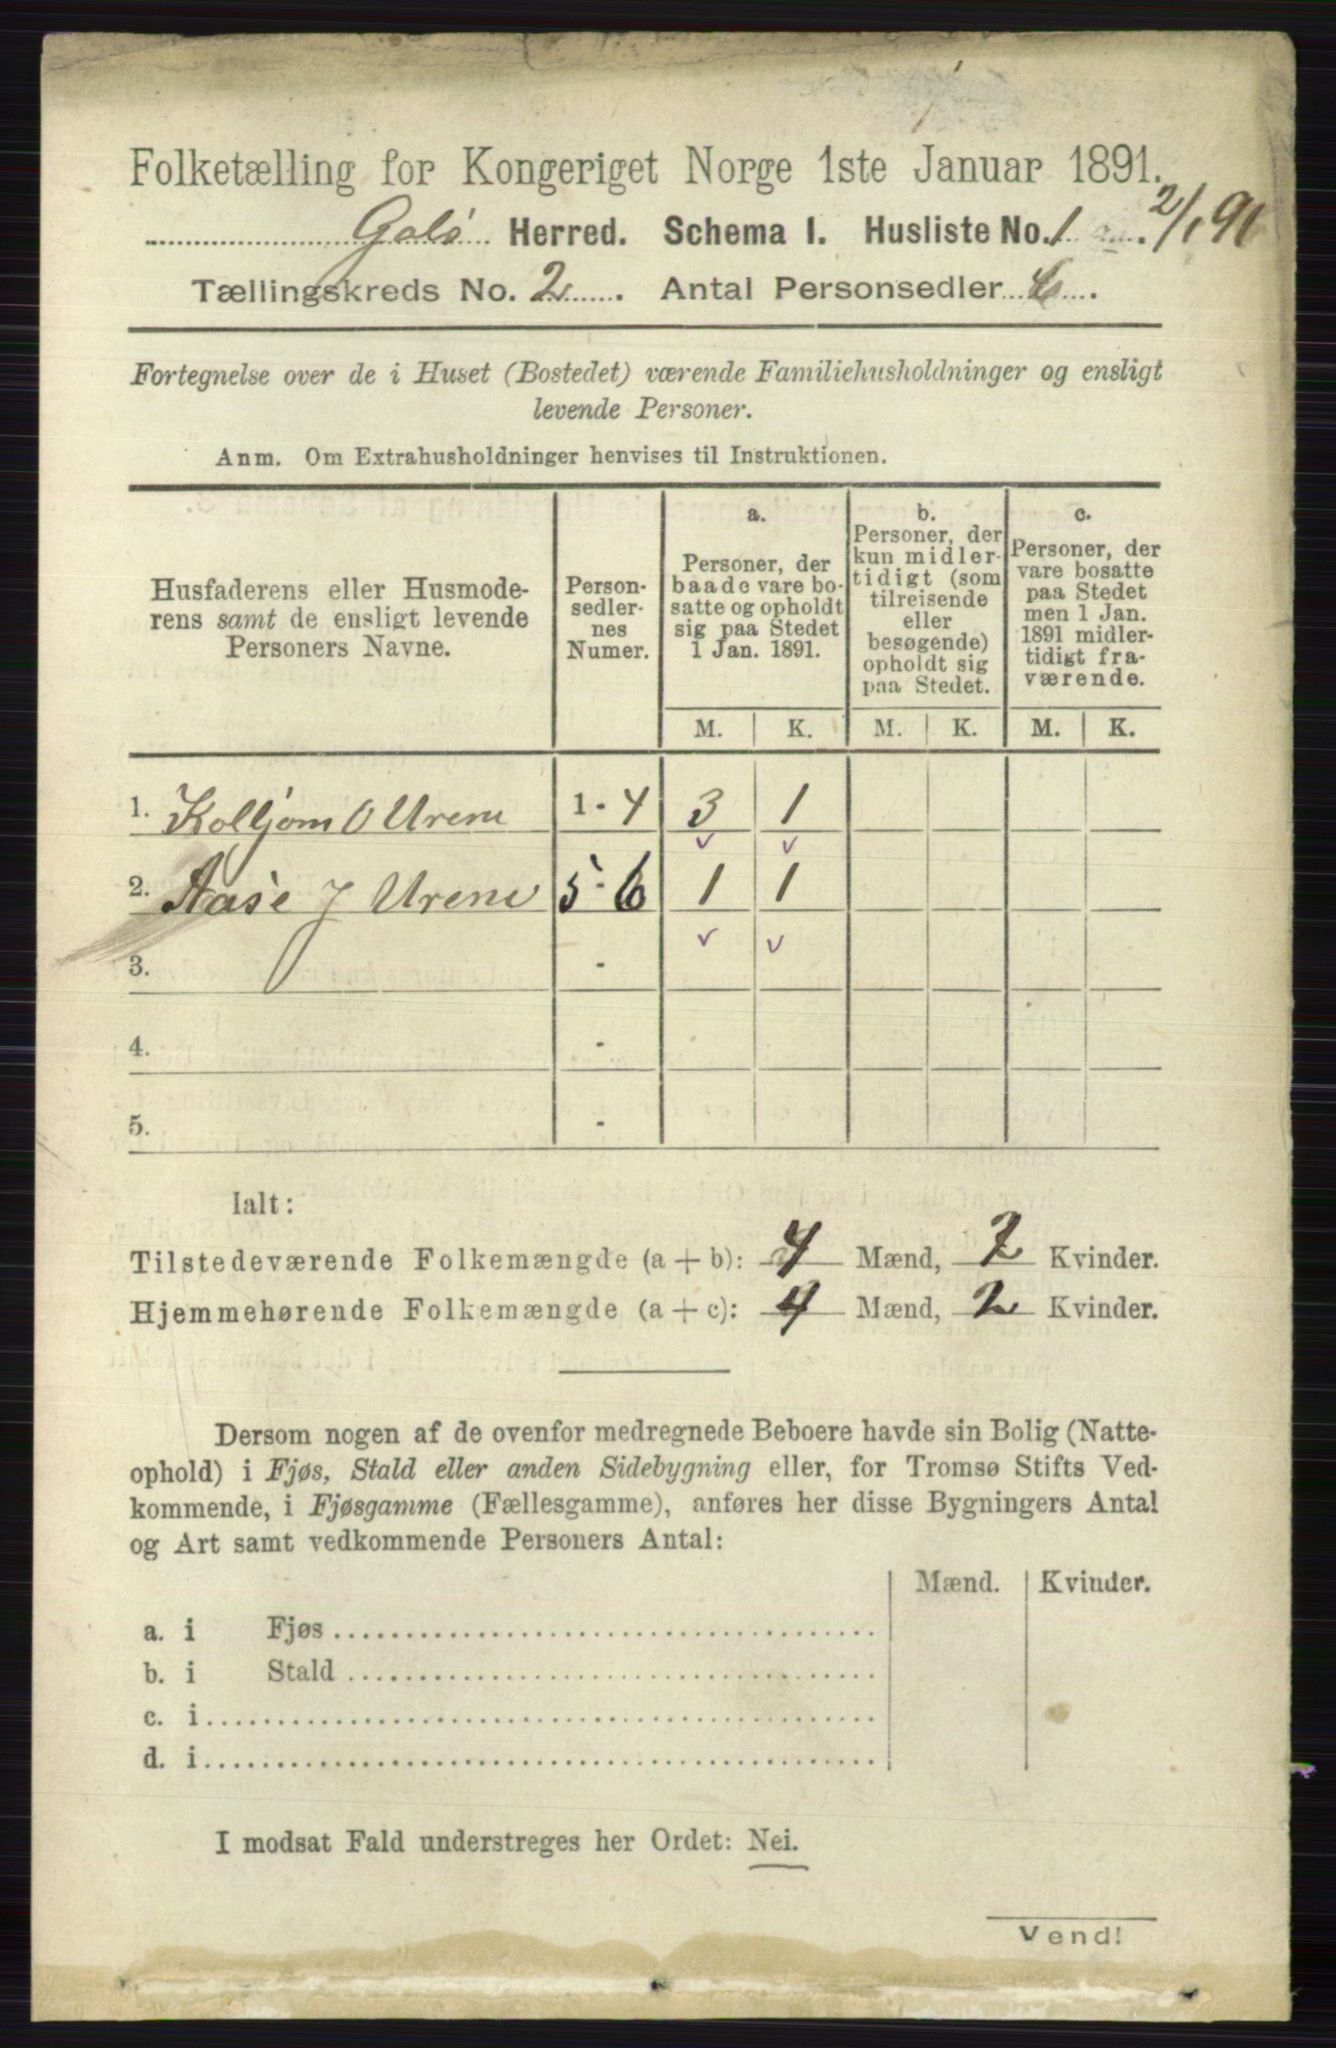 Folketælling for Kongeriget Norge 1ste Januar 1891.
Gols Herred. Schema I. Husliste No. 1 2/1 91
Tællingskreds No. 2. Antal Personsedler 6.
Fortegnelse over de i Huset (Bostedet) værende Familiehusholdninger og ensligt
levende Personer.
Anm. Om Extrahusholdninger henvises til Instruktionen.
Husfaderens eller Husmode-
rens samt de ensligt levende
Personers Navne.
Person-
sedler-
nes
Numer.
a.
Personer, der
baade vare bo-
satte og opholdt
sig paa Stedet
1 Jan. 1891.
b.
Personer, der
kun midler-
tidigt (som
tilreisende
eller
besøgende)
opholdt sig
paa Stedet.
c.
Personer, der
vare bosatte
paa Stedet
men 1 Jan.
1891 midler-
tidigt fra-
værende.
M. K. M. K. M. K.
1. Kolbjørn O Urene 1 - 4 3 1
2. Aase J Urene 5 - 6 1 1
3. -
4. -
5. -
Ialt:
Tilstedeværende Folkemængde (a + b): 4 Mænd, 2 Kvinder.
Hjemmehørende Folkemængde (a + c): 4 Mænd, 2 Kvinder.
Dersom nogen af de ovenfor medregnede Beboere havde sin Bolig (Natte-
ophold) i Fjøs, Stald eller anden Sidebygning eller, for Tromsø Stifts Ved-
kommende, i Fjøsgamme (Fællesgamme), anføres her disse Bygningers Antal
og Art samt vedkommende Personers Antal:
Mænd. Kvinder.
a. i Fjøs
b. i Stald
c. i
d. i
I modsat Fald understreges her Ordet: Nei.
Vend!